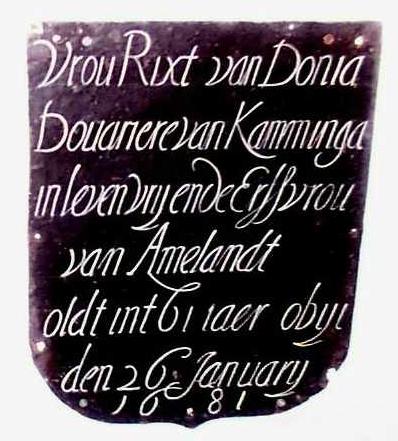 Vrou Rixt van Donia
Douariere van Kamminga
in leven vrij ende Erffvrou
van Amelandt
oldt int 61 iaer obyt
den 26 January
1681